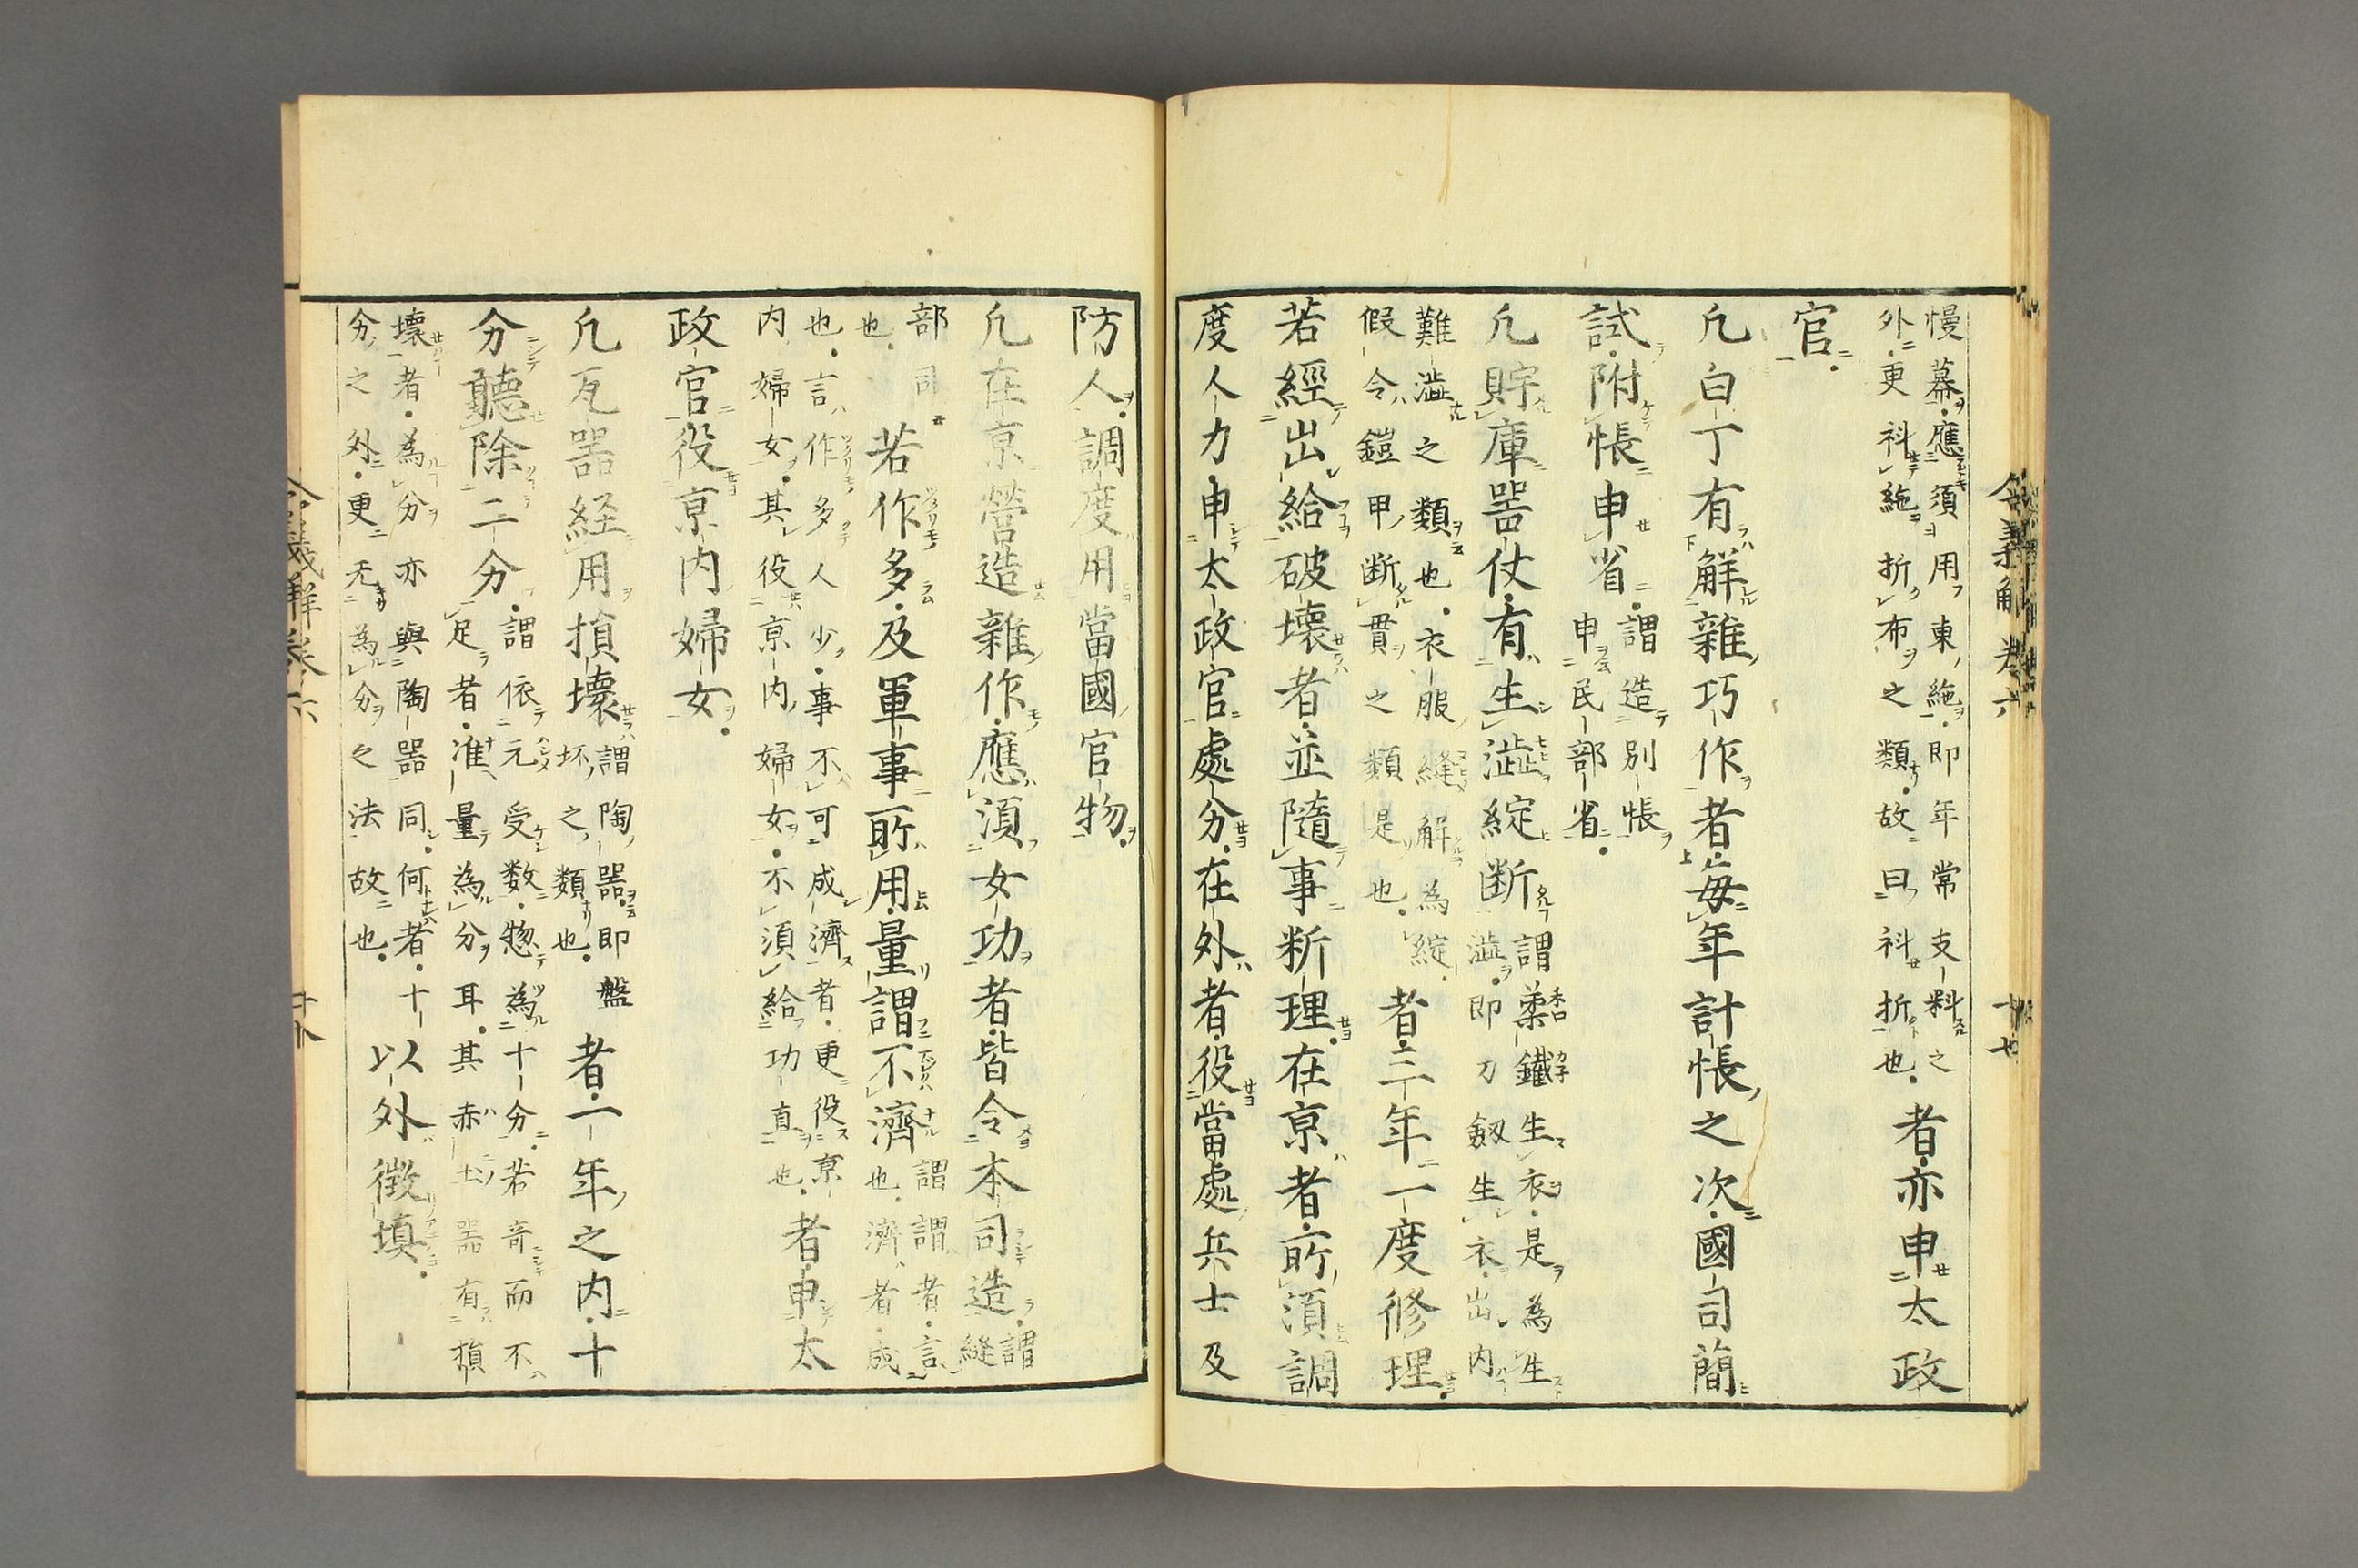 幔幕應須用東絁即年常支料之
外更科絁折布之類故曰科折也
者亦申太政
官
凡白丁有解雜巧作者每年計帳之次國司簡
試附帳申省
謂造別帳
申民部省
凡貯庫器仗有生澁綻断
謂葇鐵生衣是為生
澁即刀釼生衣出内
難澁之類也衣服縫解為綻
假令鎧甲断貫之類是也
者三年一度修理
若經出給破壞者並隨事断理在京者所須調
度人力申太政官處分在外者役當處兵士及
防人調度用當國官物
凡在京營造雜作應須女功者皆令本司造
謂
縫
部司
也
若作多及軍事所用量謂不濟
謂謂者言
也濟者成
也言作多人少事不可成濟者更役京
内婦女其役京内婦女不須給功直也
者申太
政官役京内婦女
凡瓦器経用損壞
謂陶器即盤
坏之類也
者一年之内十
分聽除二分
謂依元受数惣為十分若奇而不
足者准量為分耳其赤土器有損
壞者為分亦與陶器同何者十
分之外更无為分之法故也
以外徴填
令義解卷六
十七